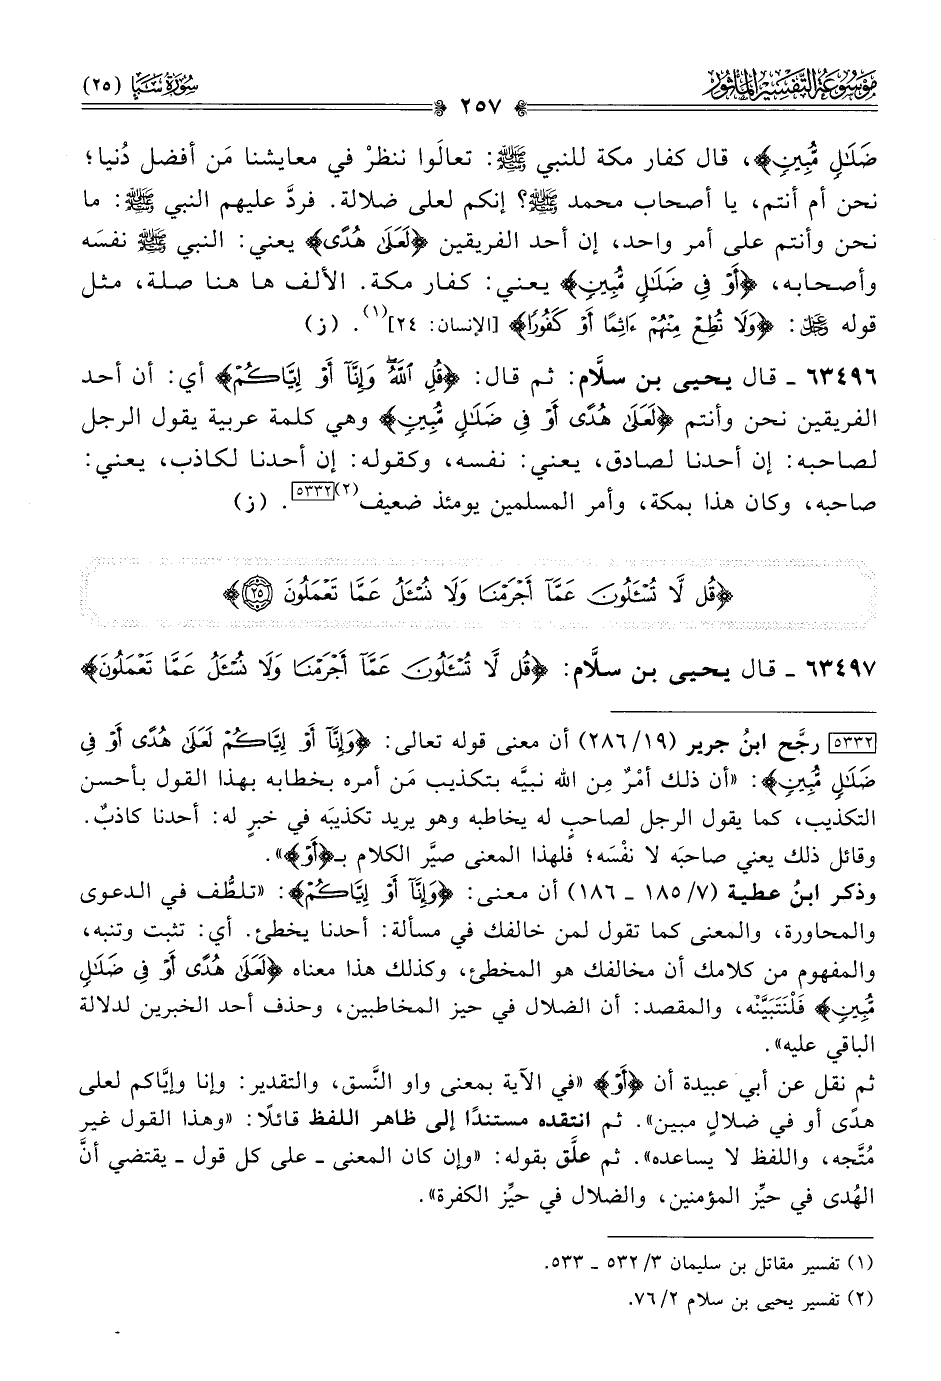 موسوعة التفسير المأثور
سورة سبأ (٢٥)
٢٥٧
ضَلَٰلٍ مُّبِينٍ﴾، قال كفار مكة للنبي ﷺ: تعالَوا ننظرْ في معايشنا مَن أفضل دُنيا؛
نحن أم أنتم، يا أصحاب محمد ﷺ؟ إنكم لعلى ضلالة. فردَّ عليهم النبي ﷺ: ما
نحن وأنتم على أمر واحد، إن أحد الفريقين ﴿لَعَلَىٰ هُدًى﴾ يعني: النبي ﷺ نفسَه
وأصحابه، ﴿أَوْ فِى ضَلَٰلٍ مُّبِينٍ﴾ يعني: كفار مكة. الألف ها هنا صلة، مثل
قوله ﷻ: ﴿وَلَا تُطِعْ مِنْهُمْ ءَاثِمًا أَوْ كَفُورًا﴾ [الإنسان: ٢٤](١). (ز)
٦٣٤٩٦ ـ قال يحيى بن سلَّام: ثم قال: ﴿قُلِ ٱللَّهُ ۖ وَإِنَّآ أَوْ إِيَّاكُمْ﴾ أي: أن أحد
الفريقين نحن وأنتم ﴿لَعَلَىٰ هُدًى أَوْ فِى ضَلَٰلٍ مُّبِينٍ﴾ وهي كلمة عربية يقول الرجل
لصاحبه: إن أحدنا لصادق، يعني: نفسه، وكقوله: إن أحدنا لكاذب، يعني:
صاحبه، وكان هذا بمكة، وأمر المسلمين يومئذ ضعيف(٢)[٥٣٣٢]. (ز)
﴿قُل لَّا تُسْـَٔلُونَ عَمَّآ أَجْرَمْنَا وَلَا نُسْـَٔلُ عَمَّا تَعْمَلُونَ ٢٥﴾
٦٣٤٩٧ ـ قال يحيى بن سلَّام: ﴿قُل لَّا تُسْـَٔلُونَ عَمَّآ أَجْرَمْنَا وَلَا نُسْـَٔلُ عَمَّا تَعْمَلُونَ﴾
[٥٣٣٢] رجَّح ابنُ جرير (١٩/ ٢٨٦) أن معنى قوله تعالى: ﴿وَإِنَّآ أَوْ إِيَّاكُمْ لَعَلَىٰ هُدًى أَوْ فِى
ضَلَٰلٍ مُّبِينٍ﴾: «أن ذلك أمْرٌ مِن الله نبيَّه بتكذيب مَن أمره بخطابه بهذا القول بأحسن
التكذيب، كما يقول الرجل لصاحبٍ له يخاطبه وهو يريد تكذيبَه في خبرٍ له: أحدنا كاذبٌ.
وقائل ذلك يعني صاحبَه لا نفْسَه؛ فلهذا المعنى صيَّر الكلام بـ﴿أَوْ﴾».
وذكر ابنُ عطية (٧/ ١٨٥ ـ ١٨٦) أن معنى: ﴿وَإِنَّآ أَوْ إِيَّاكُمْ﴾: «تلطُّف في الدعوى
والمحاورة، والمعنى كما تقول لمن خالفك في مسألة: أحدنا يخطئ. أي: تثبت وتنبه،
والمفهوم من كلامك أن مخالفك هو المخطئ، وكذلك هذا معناه ﴿لَعَلَىٰ هُدًى أَوْ فِى ضَلَٰلٍ
مُّبِينٍ﴾ فَلْنَتَبَيَّنْه، والمقصد: أن الضلال في حيز المخاطبين، وحذف أحد الخبرين لدلالة
الباقي عليه».
ثم نقل عن أبي عبيدة أن ﴿أَوْ﴾ «في الآية بمعنى واو النَّسق، والتقدير: وإنا وإيَّاكم لعلى
هدًى أو في ضلالٍ مبين». ثم انتقده مستندًا إلى ظاهر اللفظ قائلًا: «وهذا القول غير
مُتَّجه، واللفظ لا يساعده». ثم علَّق بقوله: «وإن كان المعنى ـ على كل قول ـ يقتضي أنَّ
الهُدى في حيِّز المؤمنين، والضلال في حيِّز الكفرة».
(١) تفسير مقاتل بن سليمان ٣/ ٥٣٢ ـ ٥٣٣.
(٢) تفسير يحيى بن سلام ٢/ ٧٦.